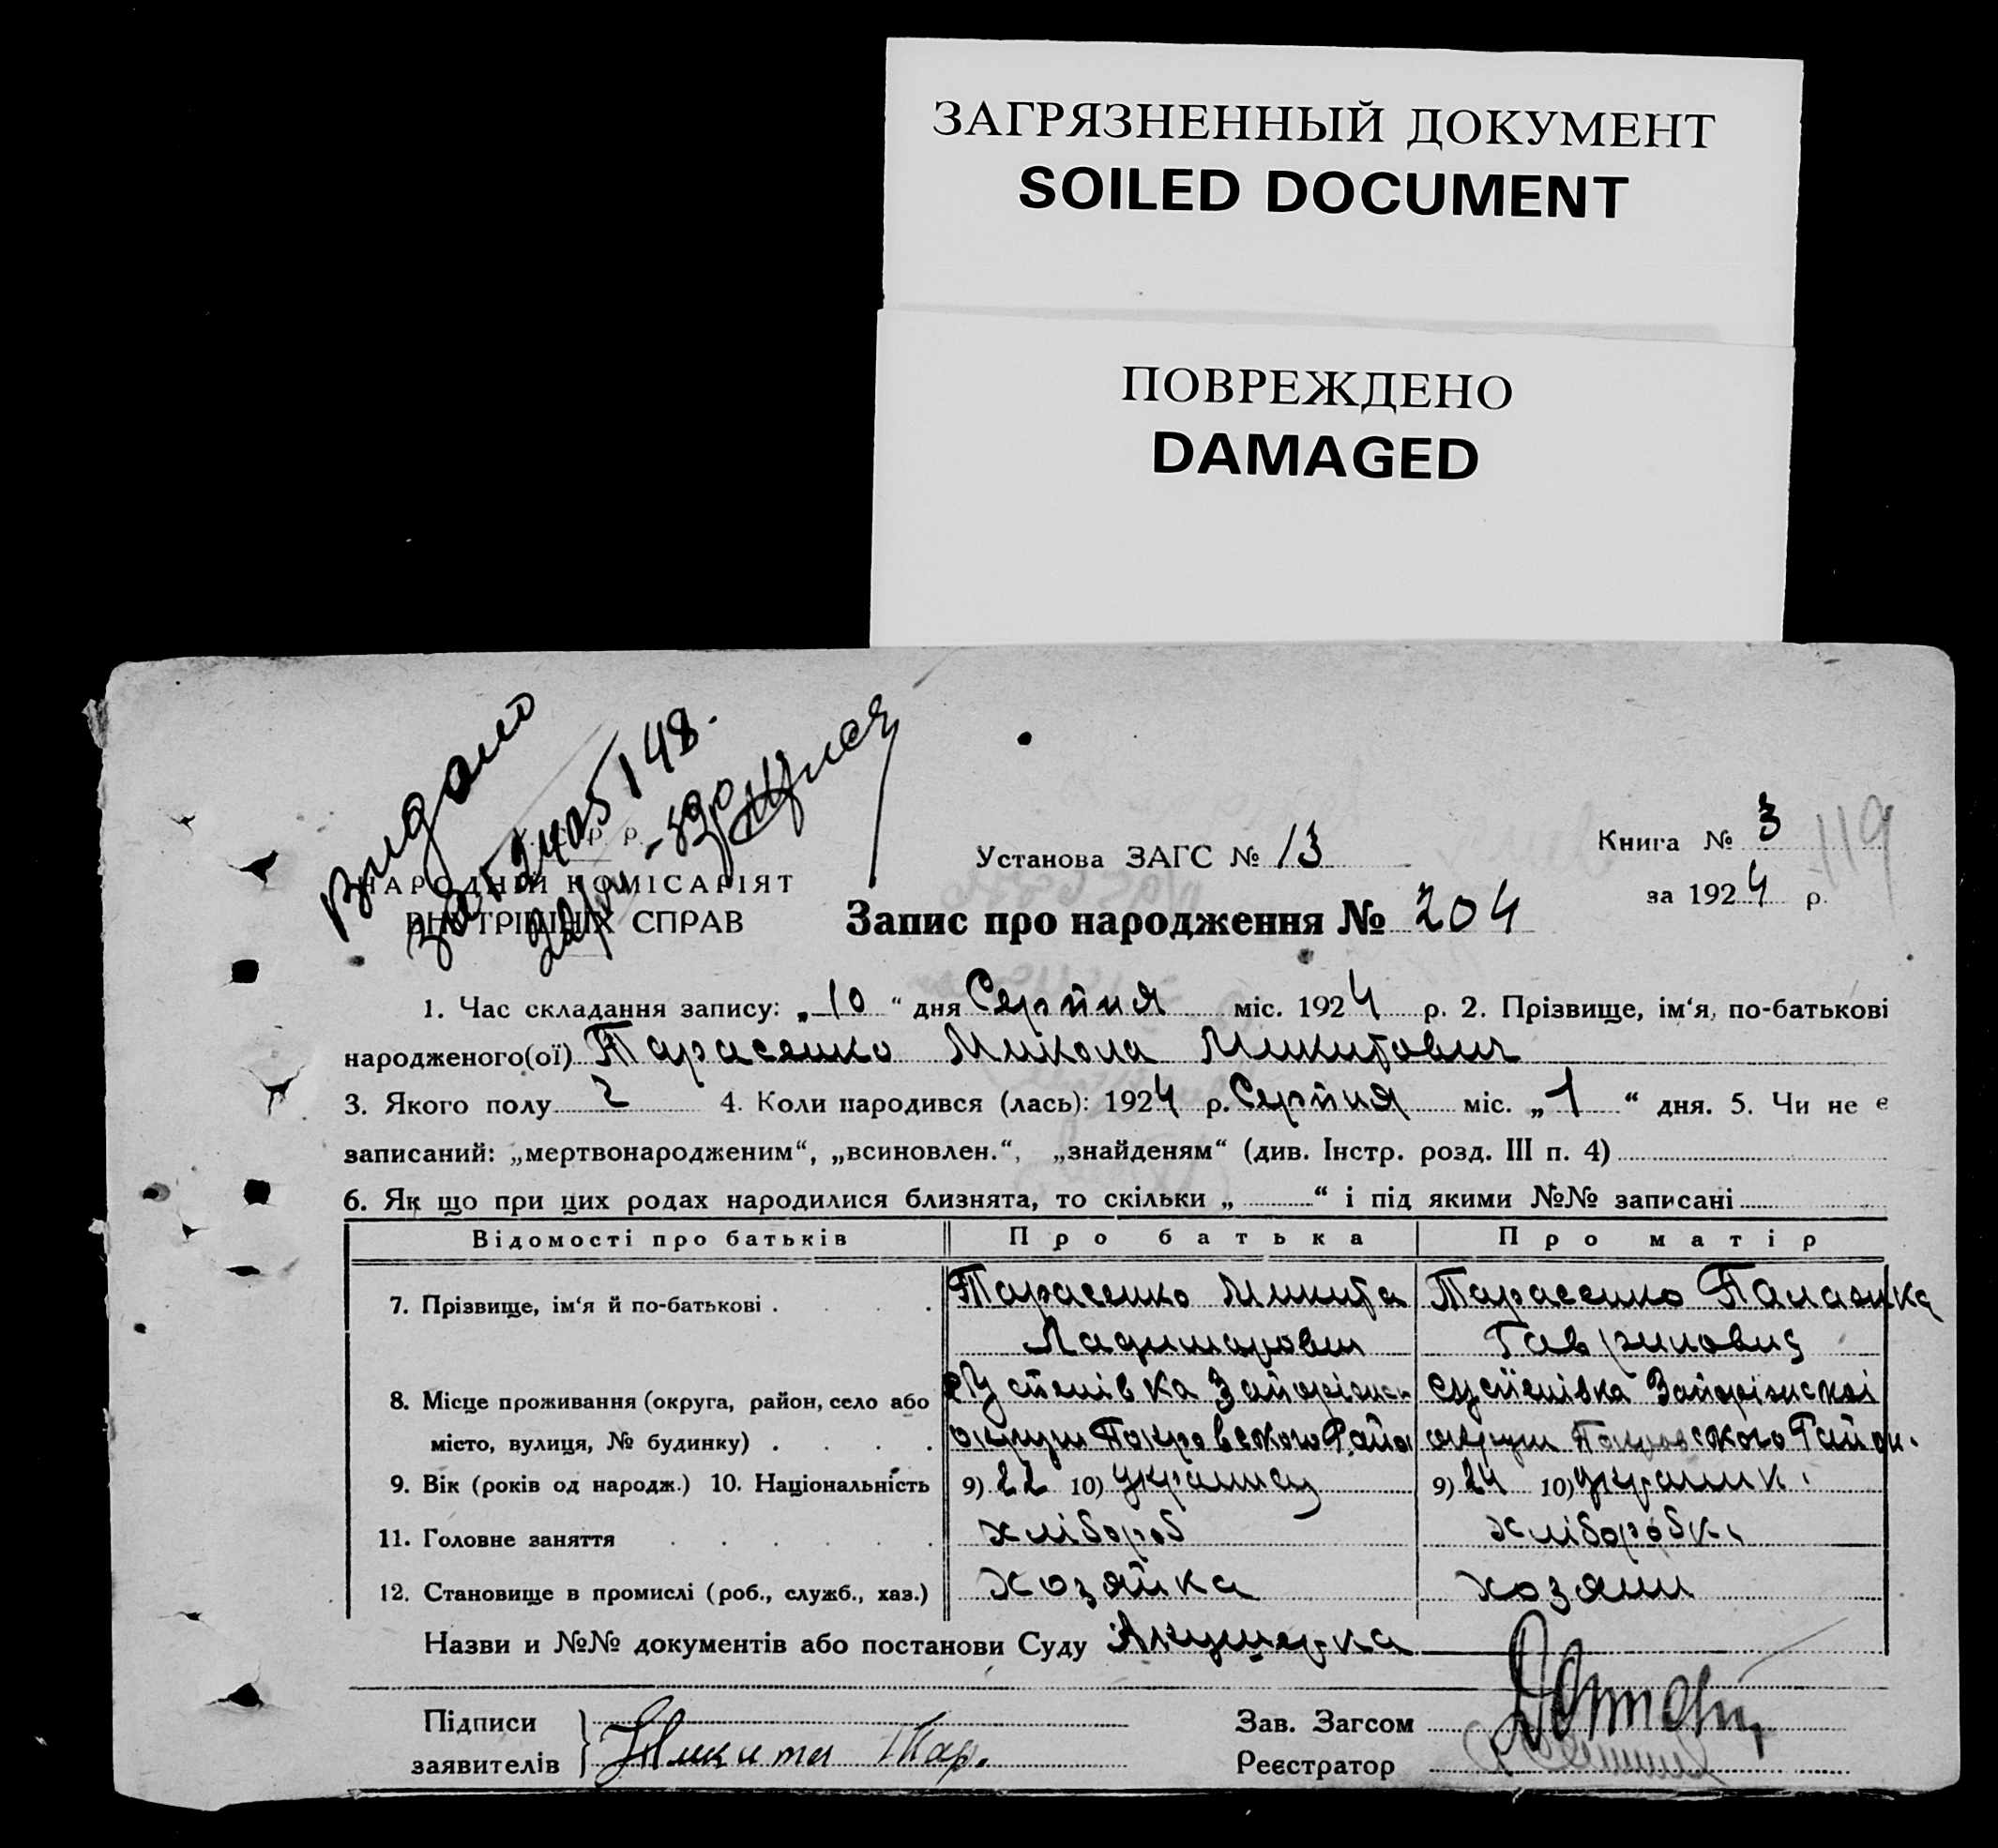 ЗАГРЯЗНЕННЫЙ ДОКУМЕНТ
SOILED DOCUMENT
ПОВРЕЖДЕНО
DAMAGED
Видано
НАРОДНІЙ КОМІСАРІЯТ
ВНУТРІШНІХ СПРАВ
Установа ЗАГС № 13
Книга № 3
119
за 1924 р.
Запис про народження № 204
1. Час складання запису: „10“ дня Серпня міс. 1924 р. 2. Прізвище, ім‘я, по-батькові
народженого(ої) Тарасенко Микола Микитович
3. Якого полу 2 4. Коли народився (лась): 1924 р. Серпня міс. „1“ дня. 5. Чи не є
записаний: „мертвонародженим“, „всиновлен.“, „знайденям“ (див. Інстр. розд. III п. 4)
6. Як що при цих родах народилися близнята, то скільки „ “ і під якими №№ записані
Відомості про батьків Про батька Про матір
7. Прізвище, ім‘я й по-батькові Тарасенко Микита Тарасенко Палажка
Гавриловна
8. Місце проживання (округа, район, село або Устенівка Запоріжск Запоріжскоі
місто, вулиця, № будинку) округи Покровского Райо округи Покровского Район.
9. Вік (років од народж.) 10. Національність 9) 22 10) Українец 9) 24 10) Україн к.
11. Головне заняття хлібороб хлібороб к.
12. Становище в промислі (роб., служб., хаз.) хозяйка хозяин
Назви и №№ документів або постанови Суду Акушерка
Підписи
заявителів Микита Тар.
Зав. Загсом
Реєстратор